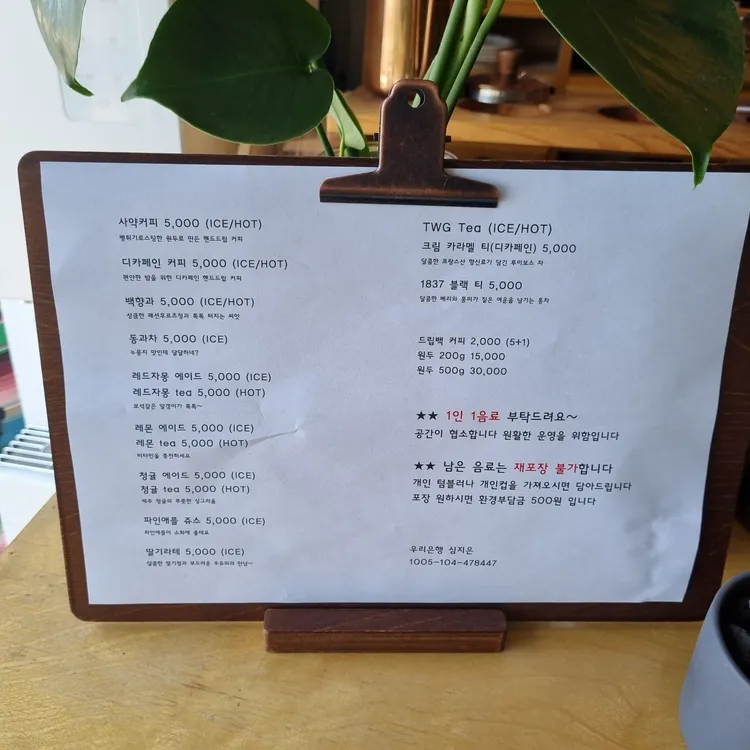 사약커피 5,000 (ICE/HOT)
뻥튀기로스팅한 원두로 만든 핸드드립 커피
디카페인 커피 5,000 (ICE/HOT)
편안한 밤을 위한 디카페인 핸드드립 커피
백향과 5,000 (ICE/HOT)
상큼한 패션후르츠청과 톡톡 터지는 씨앗
동과차 5,000 (ICE)
누룽지 맛인데 달달하네?
레드자몽 에이드 5,000 (ICE)
레드자몽 tea 5,000 (HOT)
보석같은 알갱이가 톡톡~
레몬 에이드 5,000 (ICE)
레몬 tea 5,000 (HOT)
비타민을 충전하세요
청귤 에이드 5,000 (ICE)
청귤 tea 5,000 (HOT)
제주 청귤의 푸릇한 싱그러움
파인애플 쥬스 5,000 (ICE)
파인애플이 소화에 좋데요
딸기라테 5,000 (ICE)
달콤한 딸기청과 부드러운 우유와의 만남~
TWG Tea (ICE/HOT)
크림 카라멜 티(디카페인) 5,000
달콤한 프랑스산 향신료가 담긴 루이보스 차
1837 블랙 티 5,000
달콤한 베리와 풍미가 짙은 여운을 남기는 홍차
드립백 커피 2,000 (5+1)
원두 200g 15,000
원두 500g 30,000
★★ 1인 1음료 부탁드려요~
공간이 협소합니다 원활한 운영을 위함입니다
★★ 남은 음료는 재포장 불가합니다
개인 텀블러나 개인컵을 가져오시면 담아드립니다
포장 원하시면 환경부담금 500원 입니다
우리은행 심지은
1005-104-478447